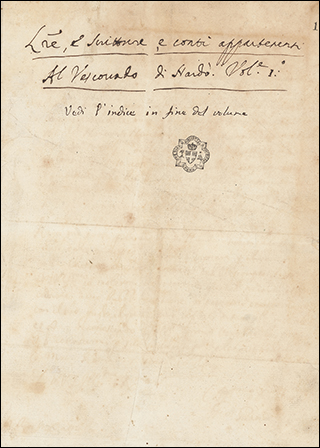 1
Lr̃e, e Scritture, e conti appartenenti
Al Vescovado di Nardò. Vol.e 1.o
Vedi l'indice in fine del volume